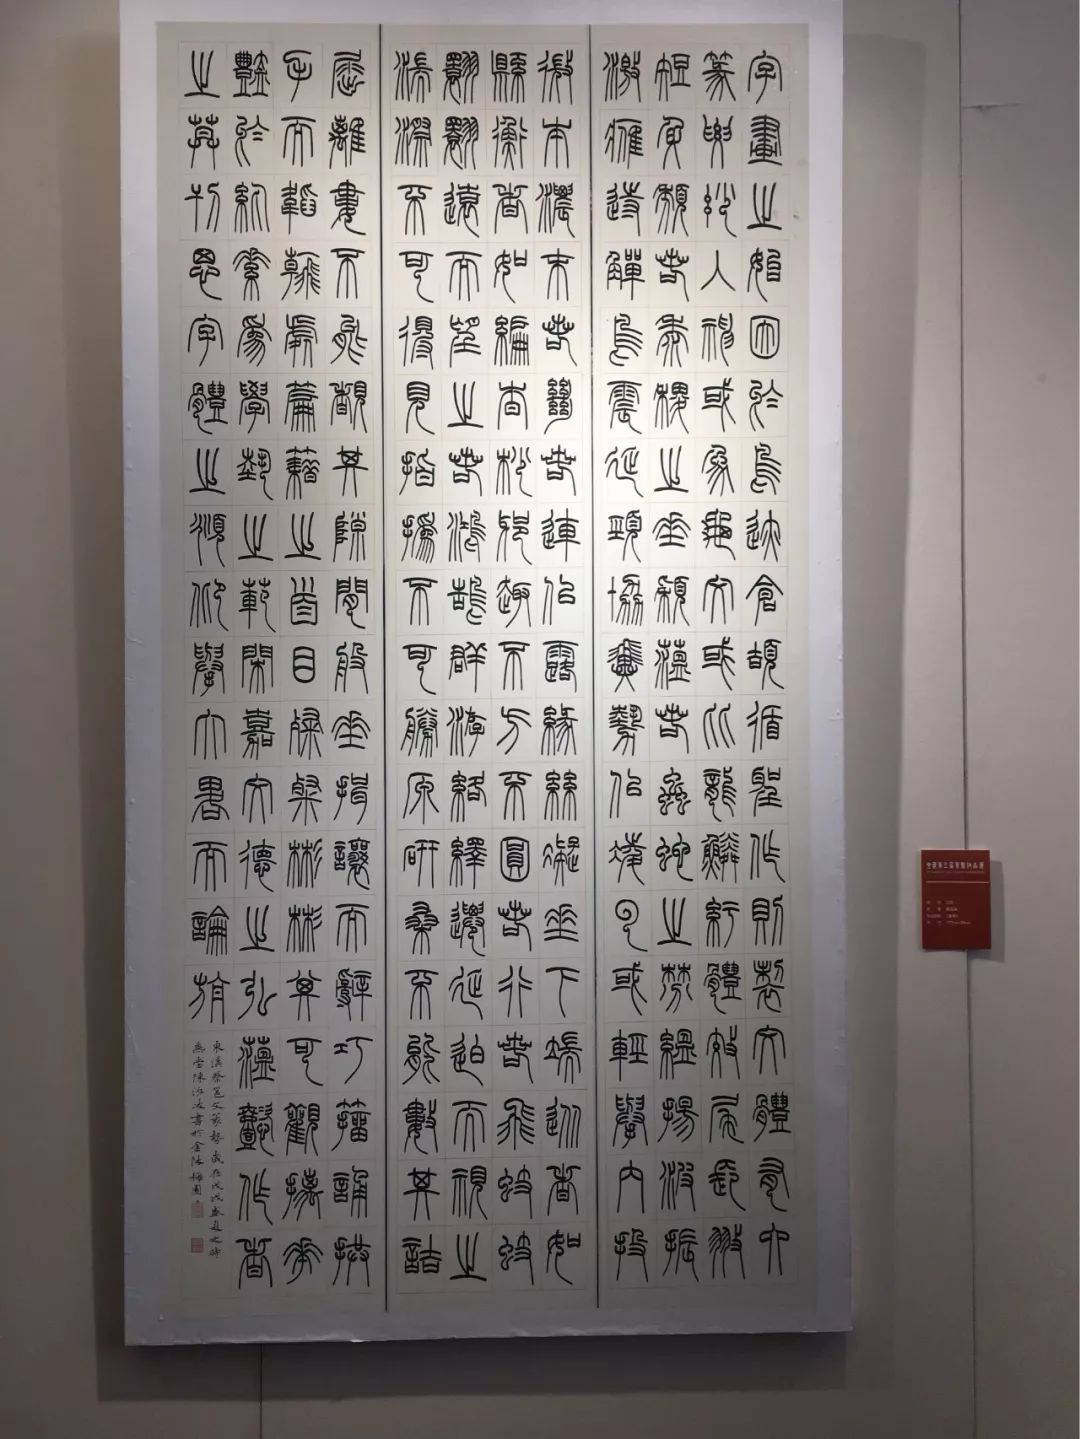 字畫之始因於鳥跡倉頡循聖作則製文體有六
篆要妙入神或象龜文或比龍鱗紆體效尾長翅
短身頹若黍稷之垂穎蘊若蟲蛇之棼縕揚波振
激鷹跱鳥震延頸協翼勢似凌云或輕舉內投
微本濃末若絕若連似露緣絲凝垂下端從者如
縣衡者如編杳杪邪趣不方不圓若行若飛蚑蚑
翾翾遠而望之若鴻鵠群游絡繹遷延迫而視之
湍漈不可得見指撝不可勝原研桑不能數其詰
屈離婁不能覩其隙間般倕揖讓而辭巧籀誦拱
手而韜翰處篇籍之首目粲粲彬彬其可觀摛華
豔於紈素為學藝之範閑嘉文德之弘蘊懿作者
之莫刊思字體之俯仰舉大略而論旃
東漢蔡邕文篆勢歲在戊戌盛夏之時
陳書於金陵梅園